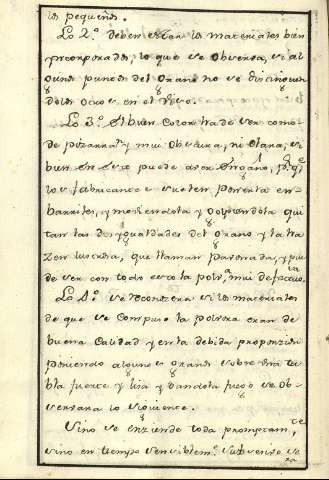 los pequeños.
Lo 2.º deben estar los materiales bien
yncorporados, lo que se observa, si al
gunos puntos del Grano no se distinguen
de los otros en el
Lo 3.º El buen Color ha de ser como
de pizarra y mui obscura, ni Clara, si
bien en esto puede aver Engaño, p.r q.e
los fabricantes suelen ponerla en
barriles, y moviendola y
tan las desygualdades del Grano y la ha
zen lustrosa, que llaman Pavonada, y pue
de ser con todo esto la polv.a mui defectuosa.
Lo 4.º se reconozera si los materiales
de que se Compuso la polvora eran de
buena Calidad y en la debida proporzion
poniendo algunos Granos sobre una ta
bla fuerte y lisa y dandola fuego se Ob-
servara lo siguiente.
Sino se enziende toda promptam.te
sino en tiempo sensiblem.te